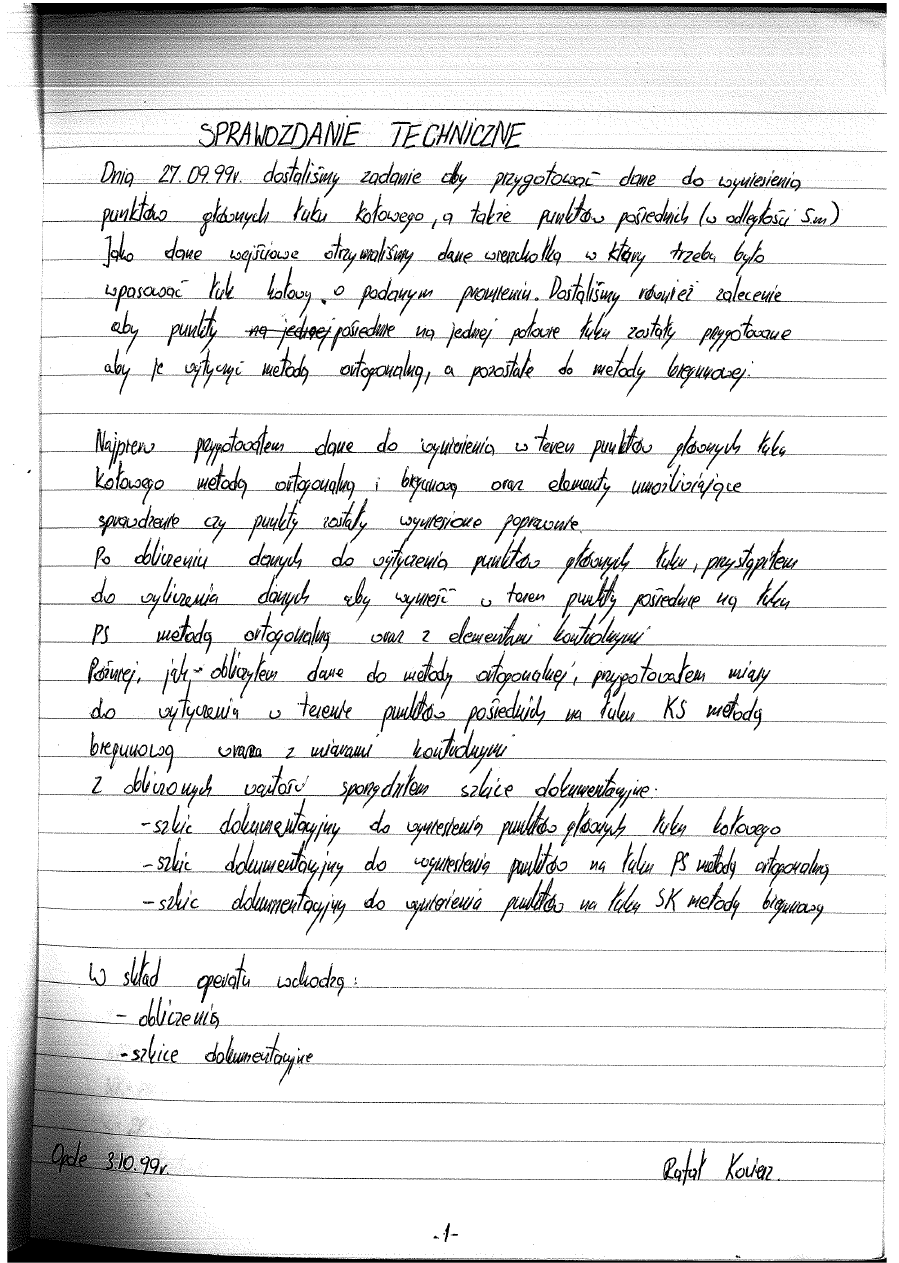 SPRAWOZDANIE TECHNICZNE
Dnia 27.09.99r. dostaliśmy zadanie aby przygotować dane do wyniesienia
punktów głównych łuku kołowego, a także punktów pośrednich (w odległości 5m)
Jako dane wejściowe otrzymaliśmy dane wierzchołka w który trzeba było
wpasować łuk kołowy o podanym promieniu. Dostaliśmy również zalecenie
aby punkty na jednej pośrednie na jednej połowie łuku zostały przygotowane
aby je wytyczyć metodą ortogonalną, a pozostałe do metody biegunowej.
Najpierw przygotowałem dane do wyniesienia w teren punktów głównych łuku
kołowego metodą ortogonalną i biegunową oraz elementy umożliwiające
sprawdzenie czy punkty zostały wyniesione poprawnie.
Po obliczeniu danych do wytyczenia punktów głównych łuku, przystąpiłem
do wyliczenia danych aby wynieść w teren punkty pośrednie na łuku
PS metodą ortogonalną wraz z elementami kontrolnymi
Później, jak obliczyłem dane do metody ortogonalnej, przygotowałem miary
do wytyczenia w terenie punktów pośrednich na łuku KS metodą
biegunową wraz z miarami kontrolnymi
Z obliczonych wartości sporządziłem szkice dokumentacyjne:
-szkic dokumentacyjny do wyniesienia punktów głównych łuku kołowego
-szkic dokumentacyjny do wyniesienia punktów na łuku PS metodą ortogonalną
-szkic dokumentacyjny do wyniesienia punktów na łuku SK metodą biegunową
W skład operatu wchodzą:
- obliczenia
-szkice dokumentacyjne
Opole 3.10.99r. Rafał
-1-